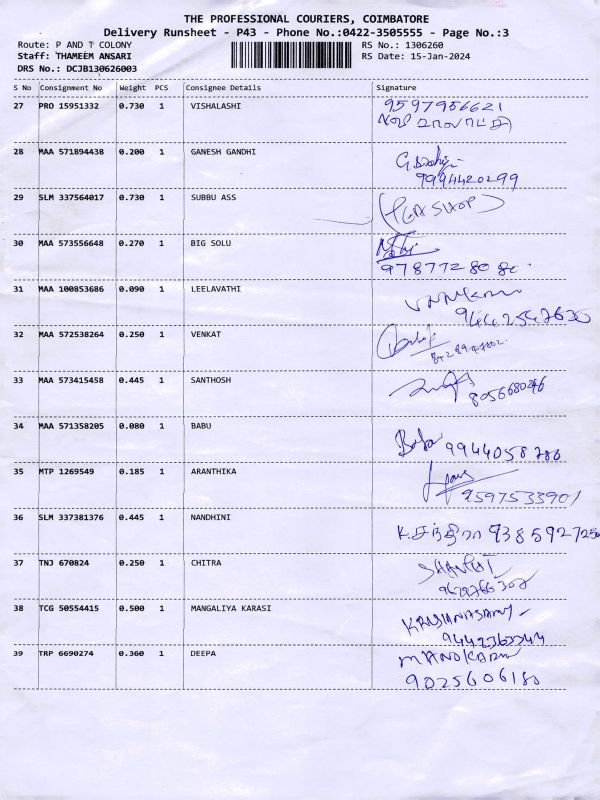 THE PROFESSIONAL COURIERS, COIMBATORE
Delivery Runsheet - P43 - Phone No.:0422-3505555 - Page No.:3
Route: P AND T COLONY
Staff: THAMEEM ANSARI
DRS No.: DCJB130626003
RS No.: 1306260
RS Date: 15-Jan-2024
S No Consignment No Weight PCS Consignee Details Signature
27 PRO 15951332 0.730 1 VISHALASHI 9597956621
28 MAA 571894438 0.200 1 GANESH GANDHI
9994420299
29 SLM 337564017 0.730 1 SUBBU ASS
30 MAA 573556648 0.270 1 BIG SOLU
31 MAA 100853686 0.090 1 LEELAVATHI
9442547630
32 MAA 572538264 0.250 1 VENKAT
33 MAA 573415458 0.445 1 SANTHOSH
34 MAA 571358205 0.080 1 BABU
Babu 9944058786
35 MTP 1269549 0.185 1 ARANTHIKA
9597533901
36 SLM 337381376 0.445 1 NANDHINI
37 TNJ 670824 0.250 1 CHITRA
38 TCG 50554415 0.500 1 MANGALIYA KARASI
39 TRP 6690274 0.360 1 DEEPA
9025606180